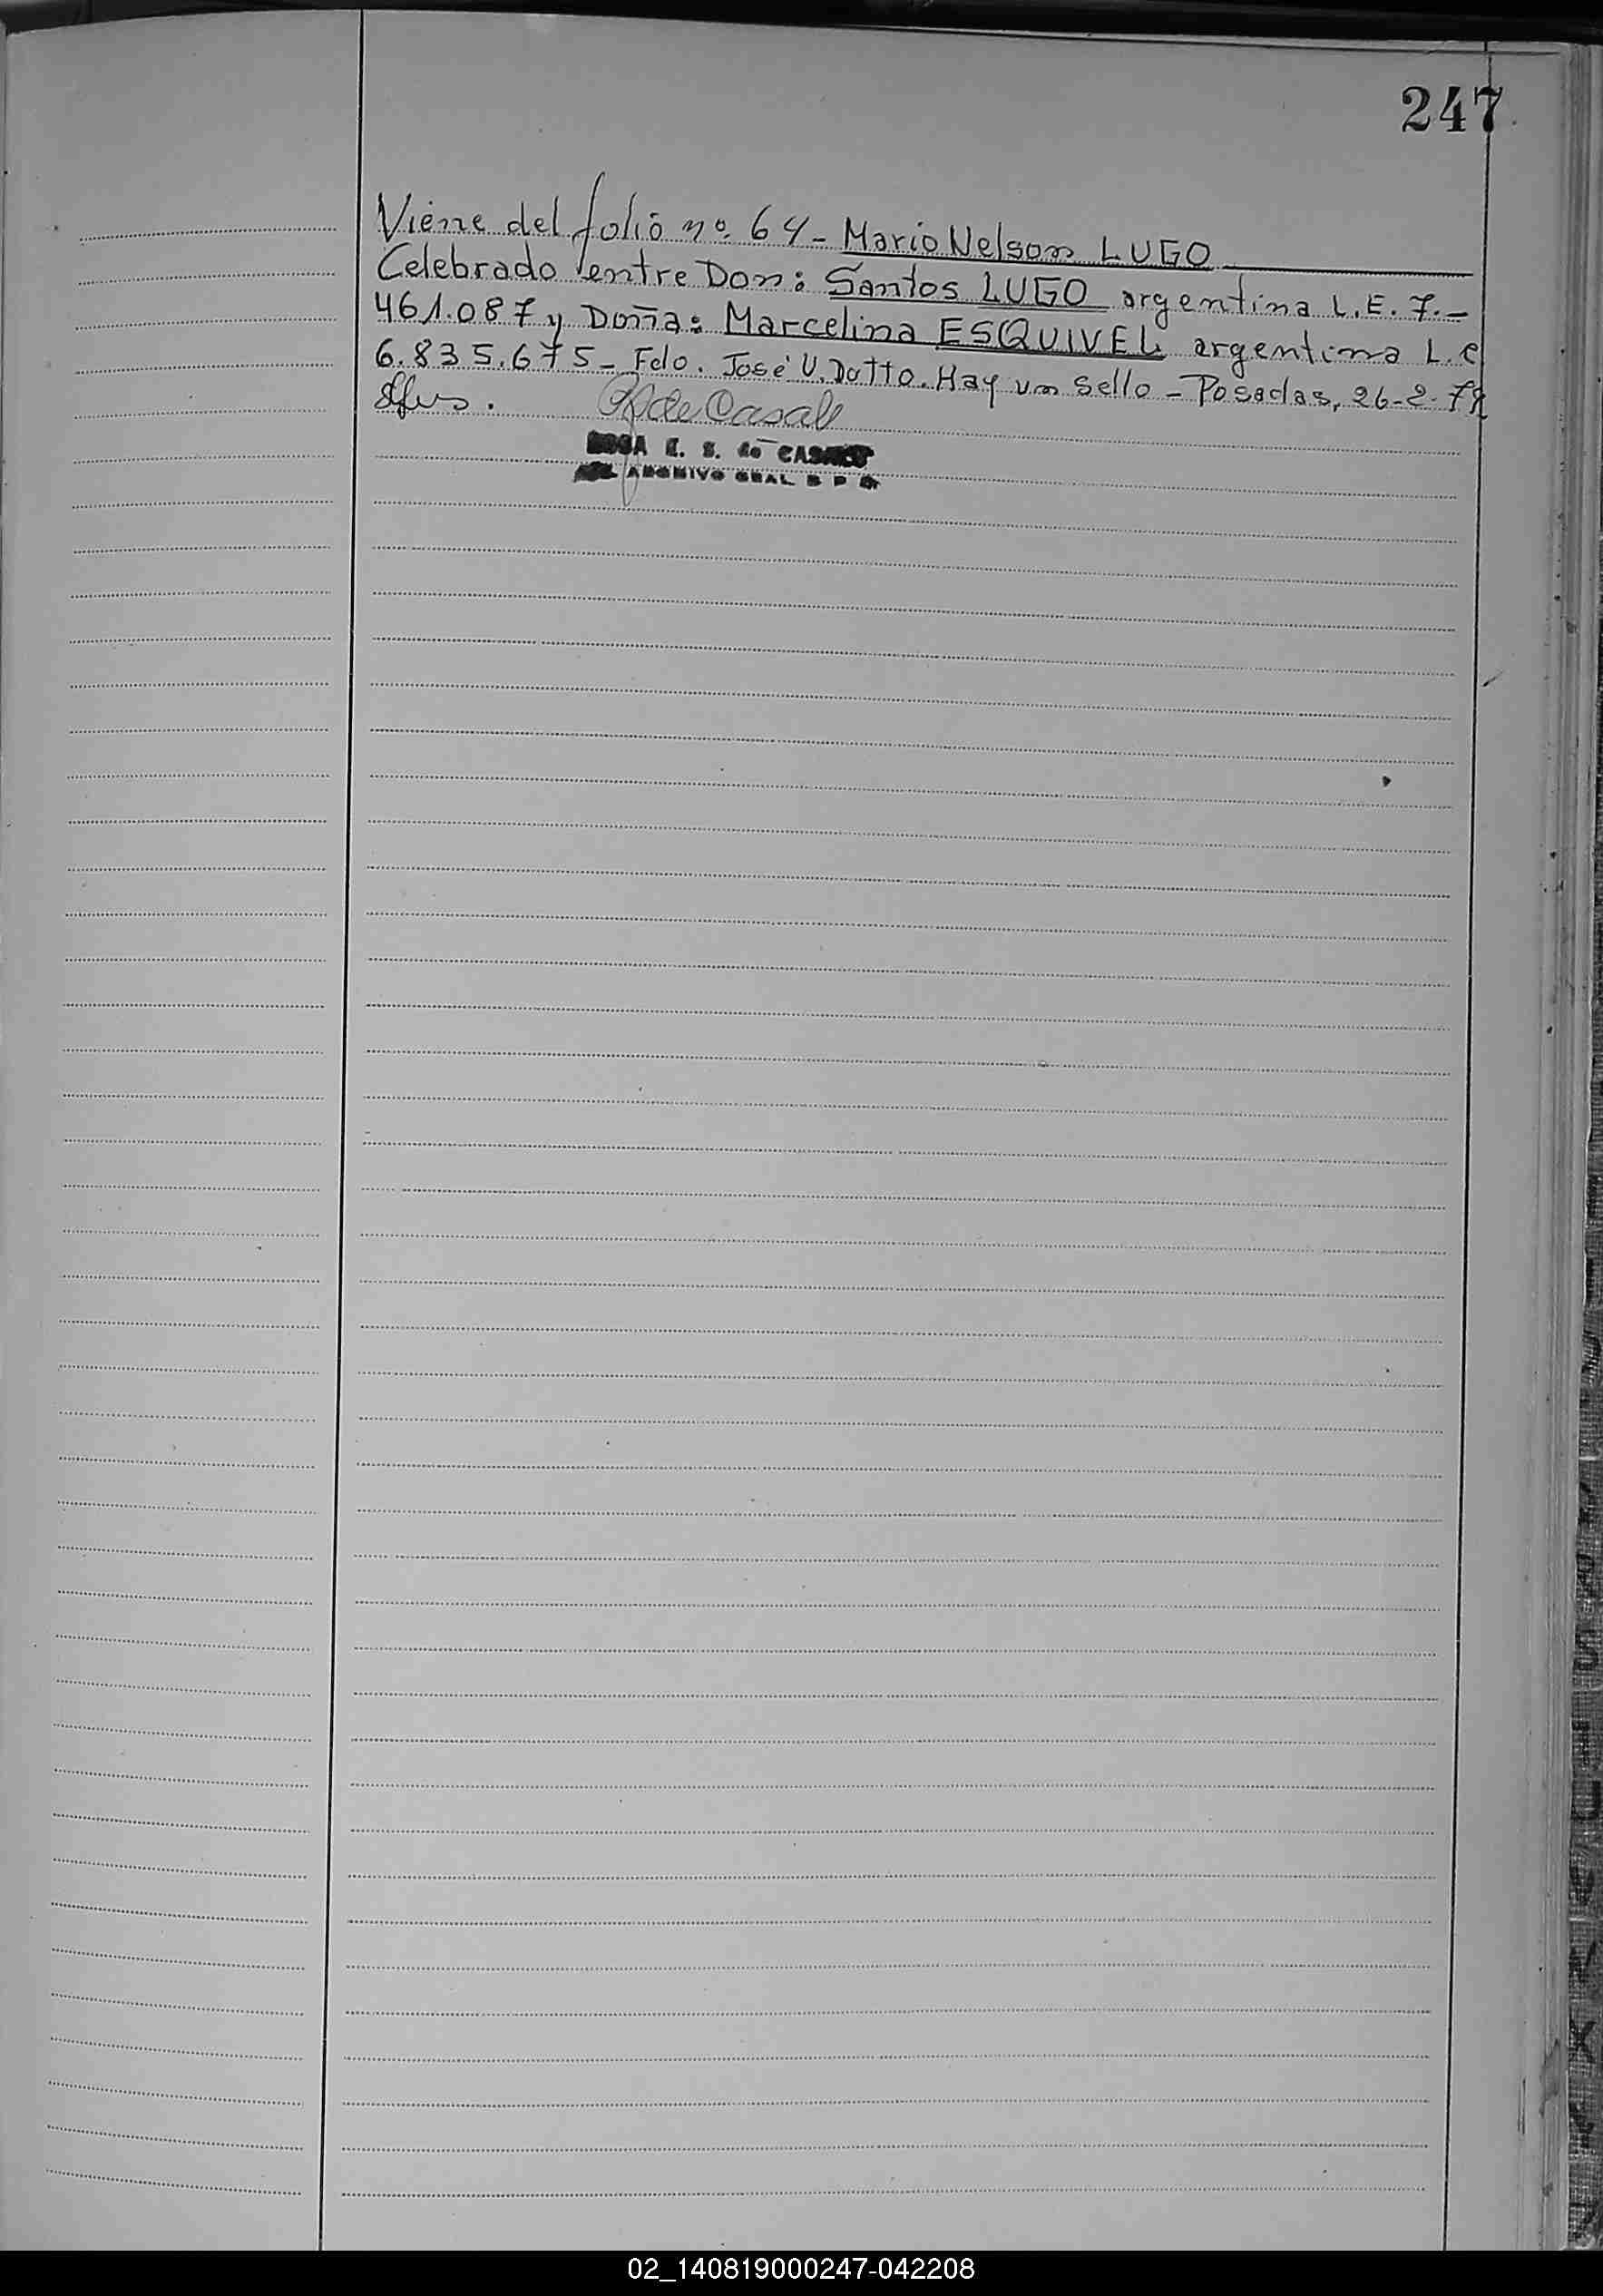 247
Viene del folio nº 64 - Mario Nelson LUGO
Celebrado entre Don: Santos LUGO argentina L.E. 7.-
461.087 y Doña: Marcelina ESQUIVEL argentina L.C
6.835.675 - Fdo. José V. Dotto. Hay un sello - Posadas, 26-2-
de Casals
ROSA E. S. de CASALS
ARCHIVO GRAL R P
02_140819000247-042208